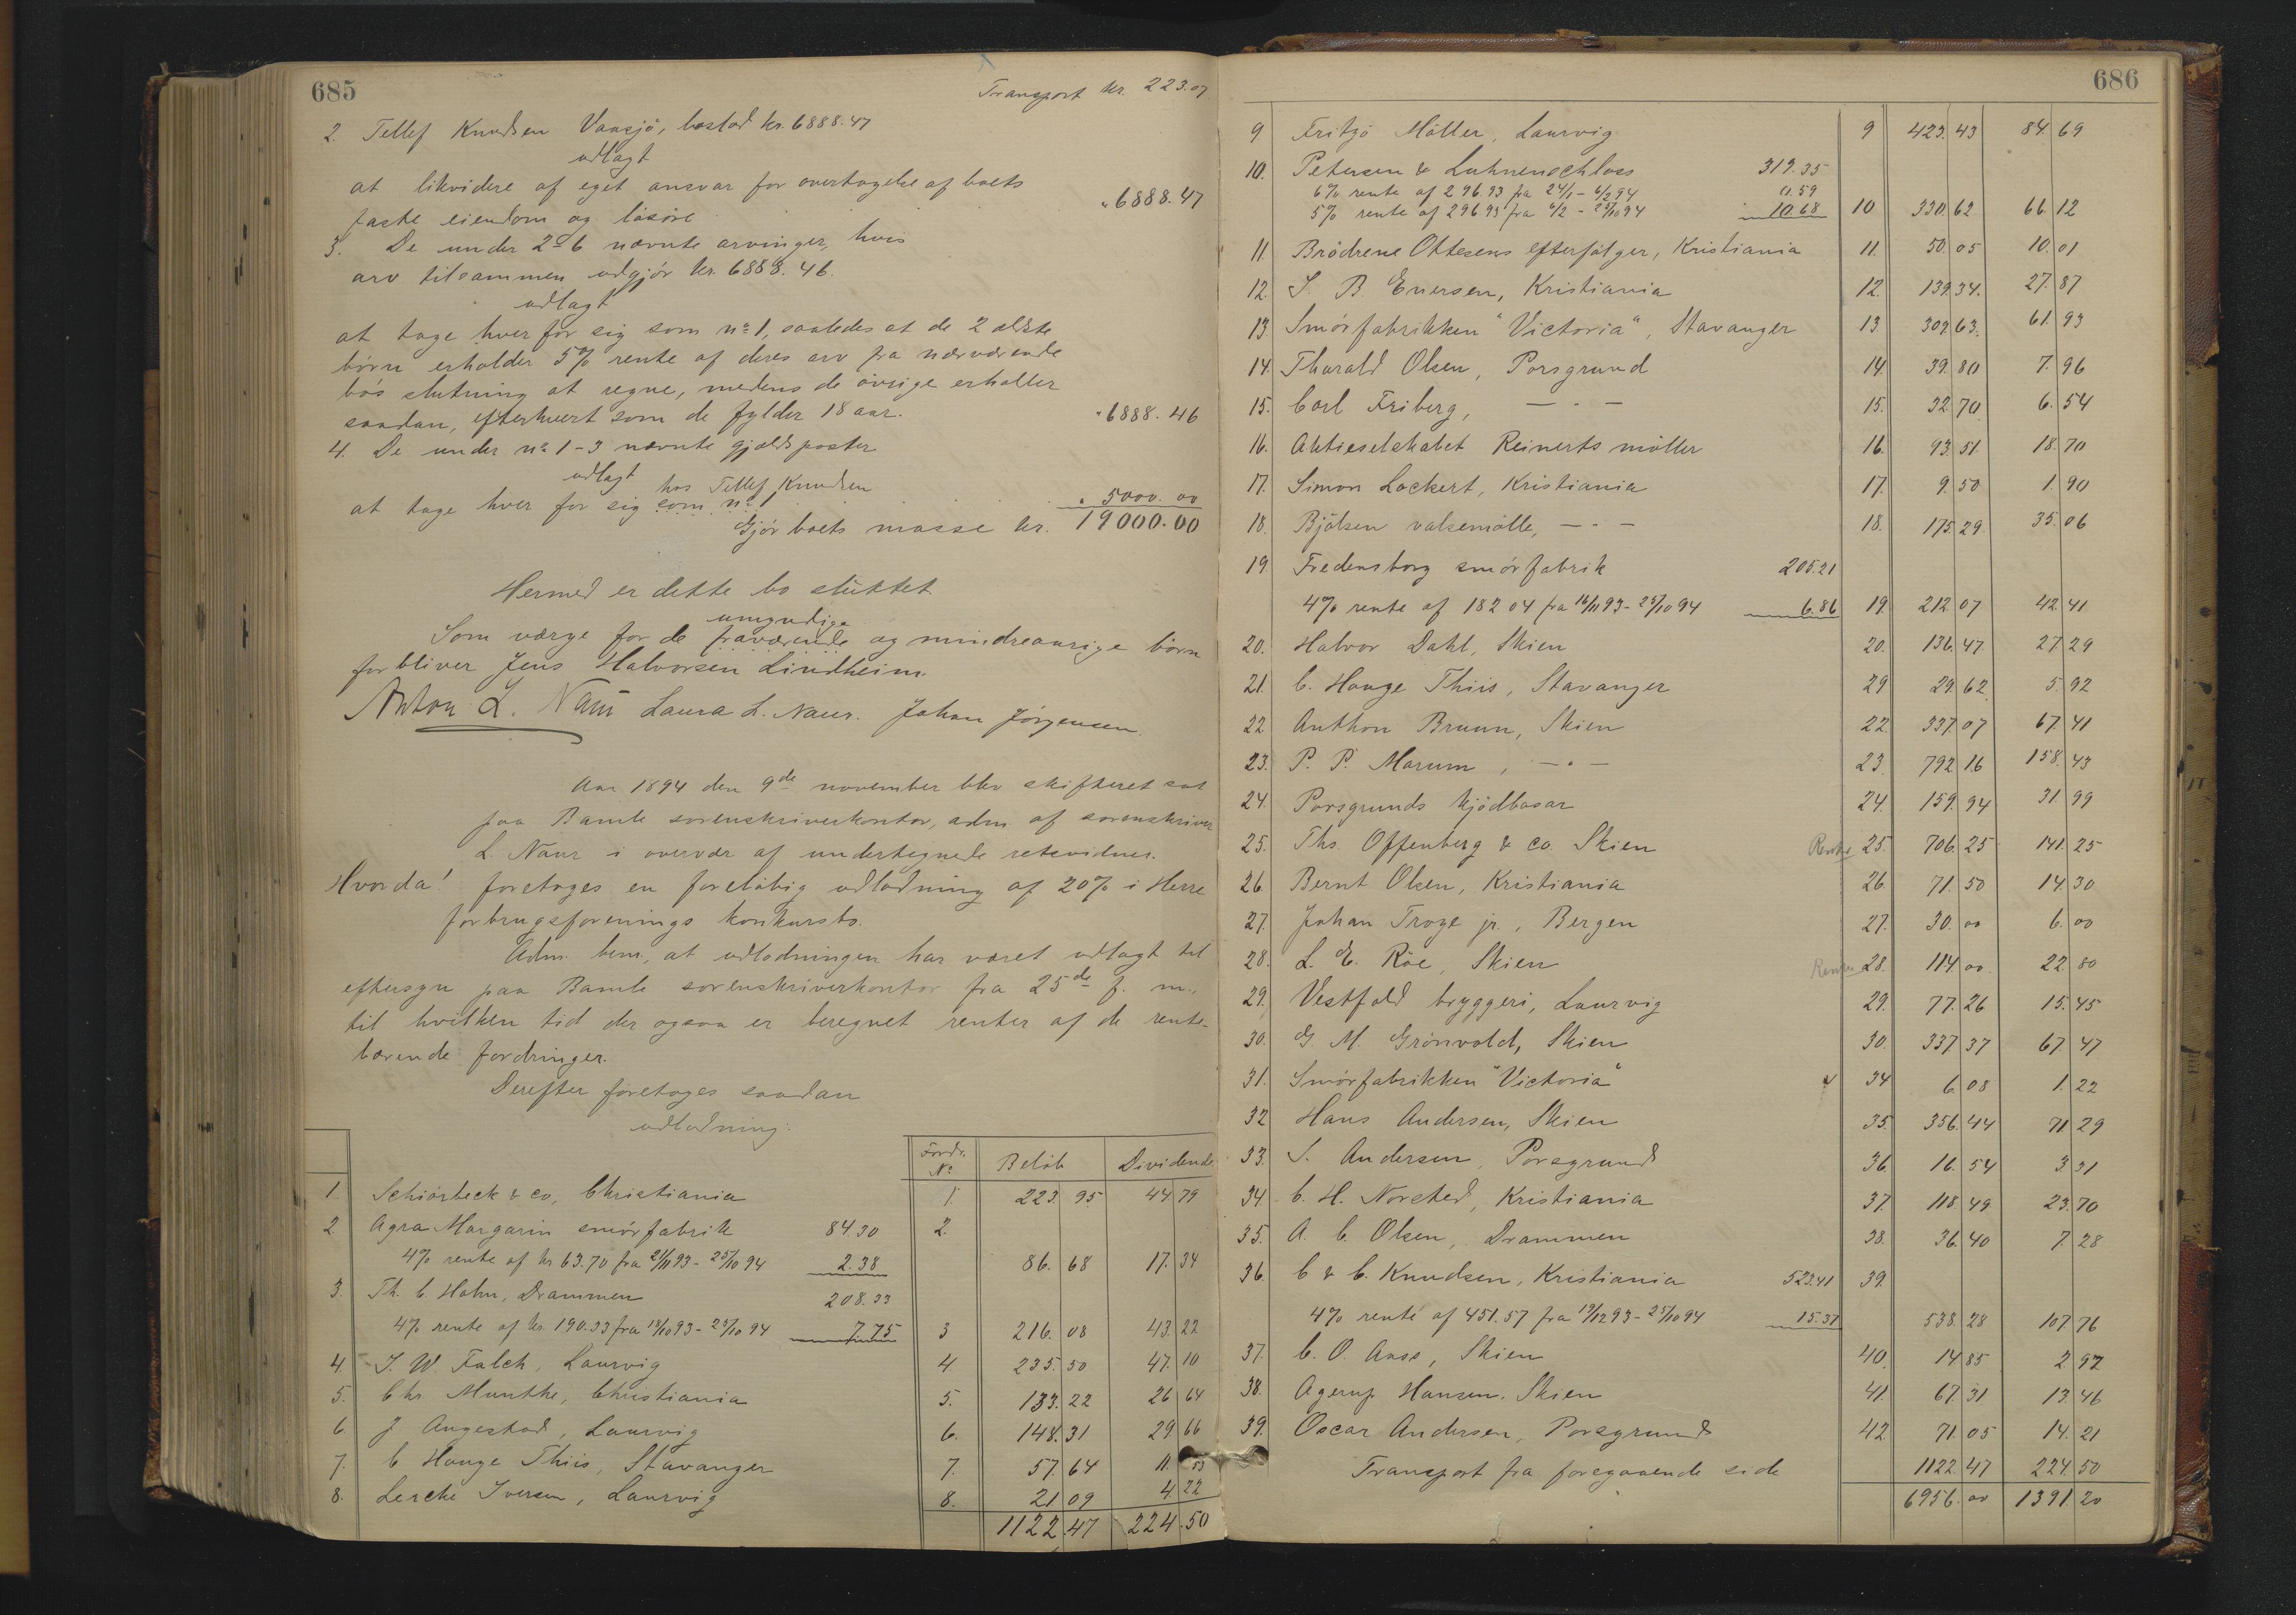 685
Transport kr. 223.07
2. Tellef Knudsen Vansjö, bostod kr. 6888.47
udlagt
at likvidere af eget ansvar for overtagelse af boets
faste eiendom og lösöre " 6888.47
3. De under 2-6 nævnte arvinger, hvis
arv tilsammen udgjör kr. 6888.46.
udlagt
at tage hver for sig som no 1, saaledes at de 2 ældste
börn erholder 5% rente af deres arv fra nærværende
bós slutning at regne, medens de övrige erholder
saadan, efterhvert som de fylder 18 aar. " 6888.46
4. De under no 1-3 nævnte gjældsposter
udlagt hos Tellef Knudsen
at tage hver for sig som no 1 " 5000.00
Gjör boets masse kr. 19000.00
Hermed er dette bo sluttet.
umyndige
Som værge for de fraværende og mindreaarige börn
forbliver Jens Halvorsen Lindheim.
Anton L. Naur Laura L. Naur. Johan Jörgensen
Aar 1894 den 9de november blev skifteret sat
paa Bamle sorenskriverkontor, adm. af sorenskriver
L. Naur i overvær af undertegnede retsvidner.
Hvorda! foretoges en foreløbig udlodning af 20% i Herre
forbrugsforenings konkursbo.
Adm. bem., at udlodningen har været udlagt til
eftersyn paa Bamle sorenskriverkontor fra 25de f. m.,
til hvilken tid der ogsaa er beregnet renter af de rente-
bærende fordringer.
Derefter foretoges saadan
udlodning:
Fordr. No Belöb Dividende
1. Schiörbeck & co, Christiania 1. 223.95 44.79
2. Agra Margarin smörfabrik 84.30 2.
4% rente af kr 63.70 fra 21/11 93 - 25/10 94 2.38 86.68 17.34
3. Th. C. Hahn, Drammen 208.33
4% rente af kr. 190.33 fra 18/10 93 - 25/10 94 7.75 3 216.08 43.22
4. J. W. Falck, Laurvig 4. 235.50 47.10
5. Chr. Munthe, Christiania 5. 133.22 26.64
6. J Augestad, Laurvig 6. 148.31 29.66
7. C Hauge Thiis, Stavanger 7. 57.64 11.53
8. Lerche Iversen, Laurvig 8. 21.09 4.22
1122.47 224.50
686
9 Fritzö Möller, Laurvig 9 423.43 84.69
10. Petersen & Luhnenschloss 319.35
6% rente af 296.93 fra 24/1 - 6/2 94 0.59
5% rente af 296.93 fra 6/2 - 25/10 94 10.68 10 330.62 66.12
11. Brödrene Ottesens efterfölger, Kristiania 11. 50.05 10.01
12. S. B. Enersen, Kristiania 12. 139.34. 27.87
13. Smörfabrikken "Victoria", Stavanger 13. 309.63. 61.93
14. Tharald Olsen, Porsgrund 14. 39.80 7.96
15. Carl Friberg, — " — 15. 32.70 6.54
16. Aktieselskabet Reinerts möller 16. 93.51 18.70
17. Simon Lockert, Kristiania 17. 9.50 1.90
18. Bjölsen valsemölle, — " — 18. 175.29. 35.06
19. Fredensborg smörfabrik 205.21
4% rente af 182 04 fra 16/11 93 - 25/10 94 6.86 19. 212.07 42.41
20. Halvor Dahl, Skien 20. 136.47. 27.29
21. C. Hauge Thiis, Stavanger 29 29.62 5.92
22 Anthon Bruun, Skien 22. 337.07 67.41
23. P. P. Marum, — " — 23. 792.16 158.43
24. Porsgrunds kjödbasar 24. 159.94 31.99
25. Ths. Offenberg & co. Skien Renter 25. 706.25 141.25
26. Bernt Olsen, Kristiania 26. 71.50 14.30
27. Johan Troye jr., Bergen 27. 30.00 6.00
28. L. E. Röe, Skien Renter 28. 114.00 22.80
29. Vestfold bryggeri, Laurvig 29. 77.26 15.45
30. G. M. Grönvold, Skien 30. 337.37 67.47
31. Smörfabrikken "Victoria" 34 6.08 1.22
32 Hans Andersen, Skien 35. 356.44 71.29
33. S. Andersen, Porsgrund 36. 16.54 3.31
34. C. H. Norsted, Kristiania 37. 118.49 23.70
35. A. C. Olsen, Drammen 38. 36.40 7.28
36. C & C. Knudsen, Kristiania 523.41 39.
4% rente af 451.57 fra 19/12 93 - 25/10 94 15.37 538.28 107.76
37. C. O. Aass, Skien 40. 14.85 2.97
38. Agerup Hansen, Skien 41. 67.31 13.46
39. Oscar Andersen, Porsgrund 42 71.05 14.21
Transport fra foregaaende side 1122.47 224.50
6956.00 1391.20